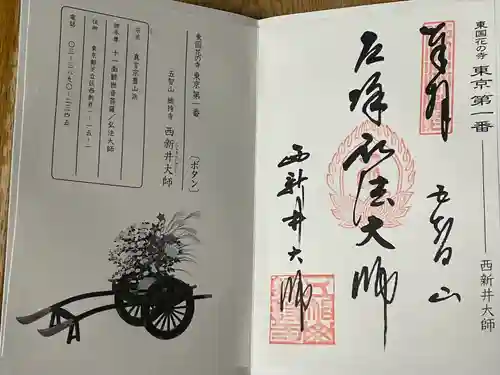 東国花の寺 東京 第一番 西新井大師
奉拝
五智山
厄除弘法大師
西新井大師
東国花の寺 東京 第一番 〔ボタン〕
五智山 總持寺 西新井大師
宗派 真言宗豊山派
御本尊 十一面観世音菩薩/弘法大師
住所 東京都足立区西新井一-一五-一
電話 〇三-三八九〇-二三四五